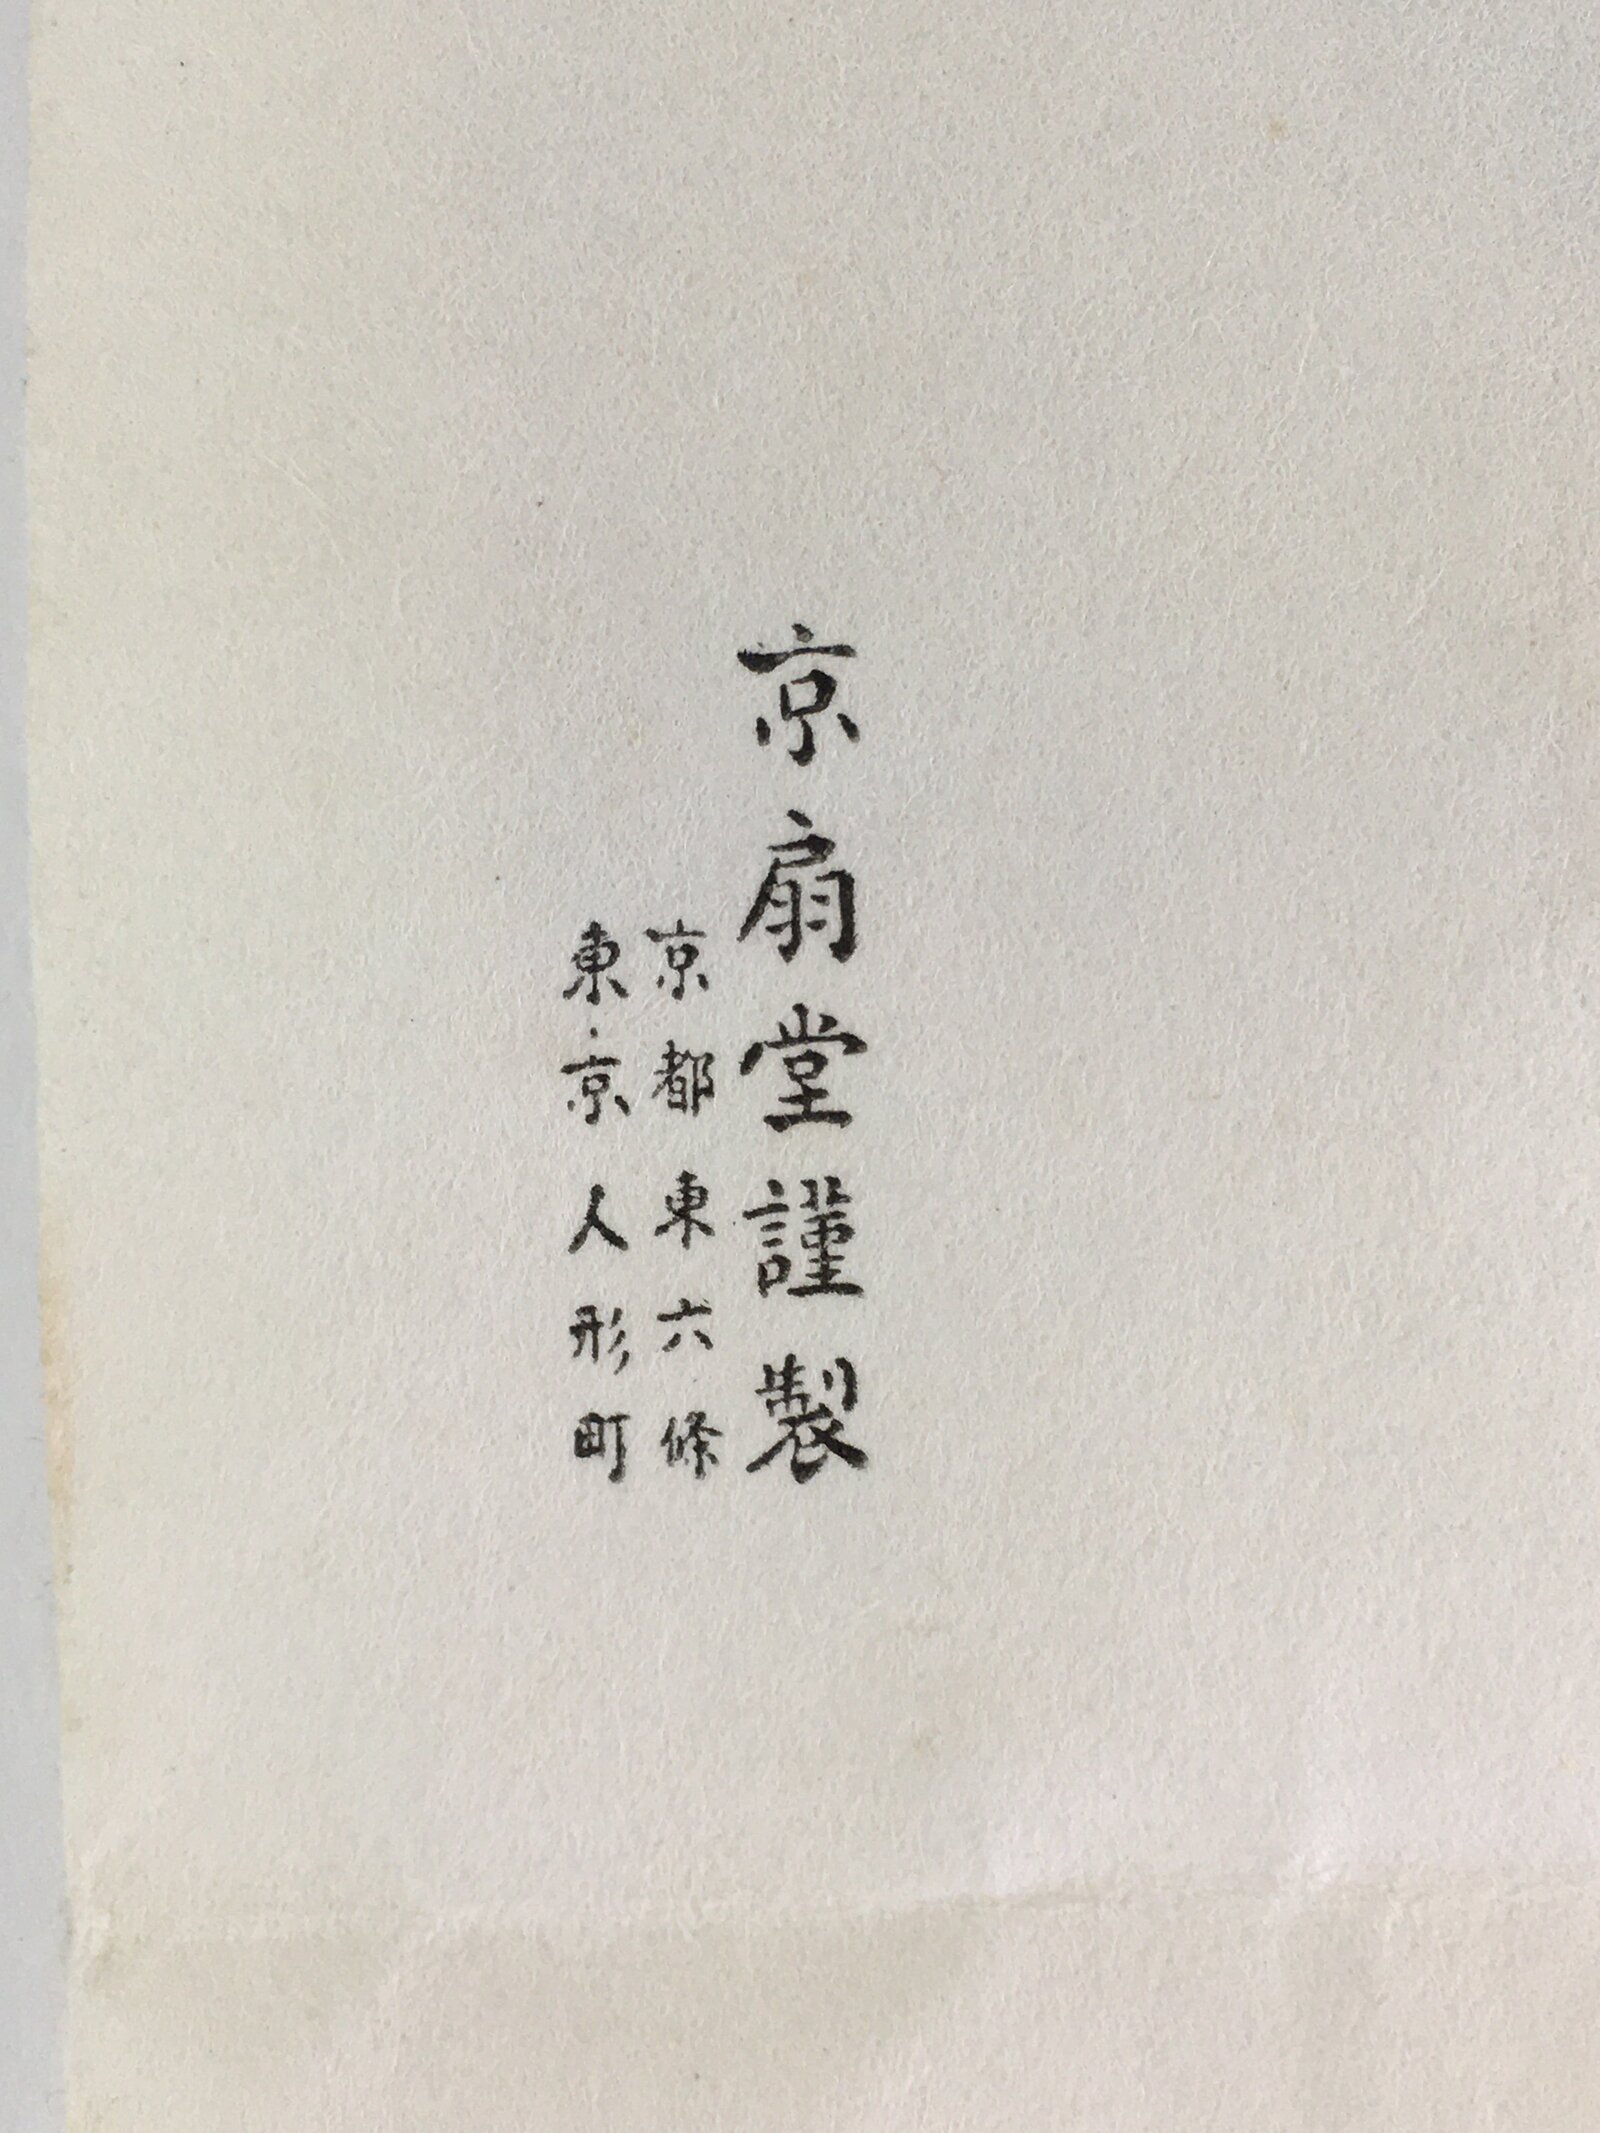 京扇堂謹製
京都東六條
東京人形町